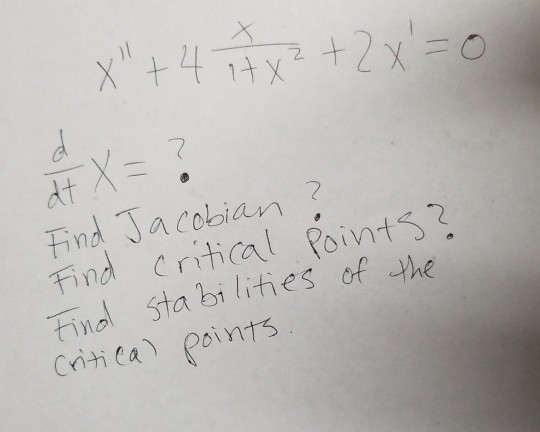 x'' + 4 x/(1+x²) + 2x' = 0
d/dt X = ?
Find Jacobian ?
Find critical Points?
Find stabilities of the
critical points.